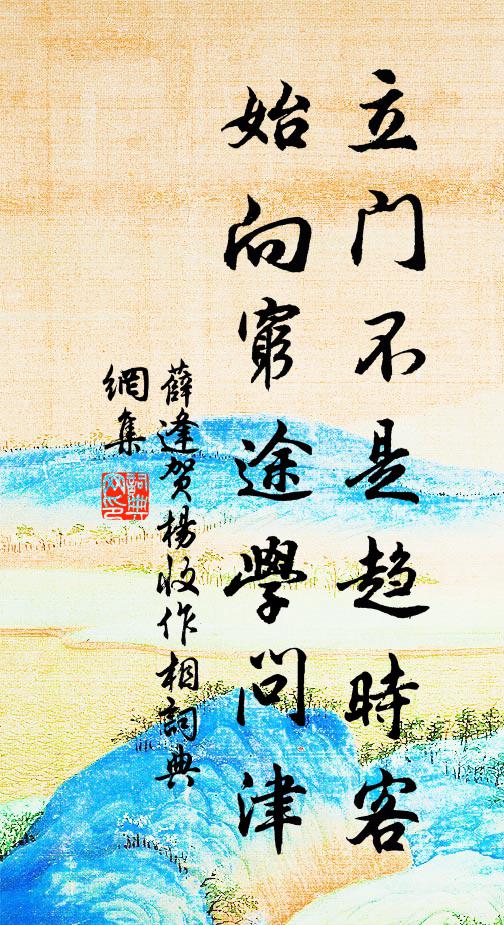 立门不是趋時客
始向窮途學問津
薛逢贺楊收作相詞典
網集
詞典
网印